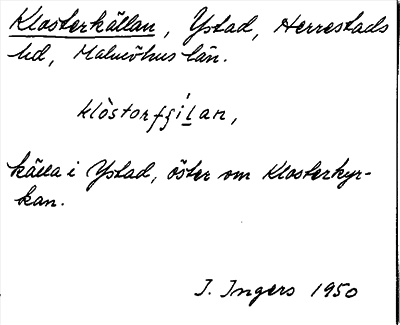 Klosterkällan, Ystad, Herrestads
hd, Malmöhus län.
klòstorʃʒílan,
källa i Ystad, öster om Klosterkyr-
kan.
I. Ingers 1950